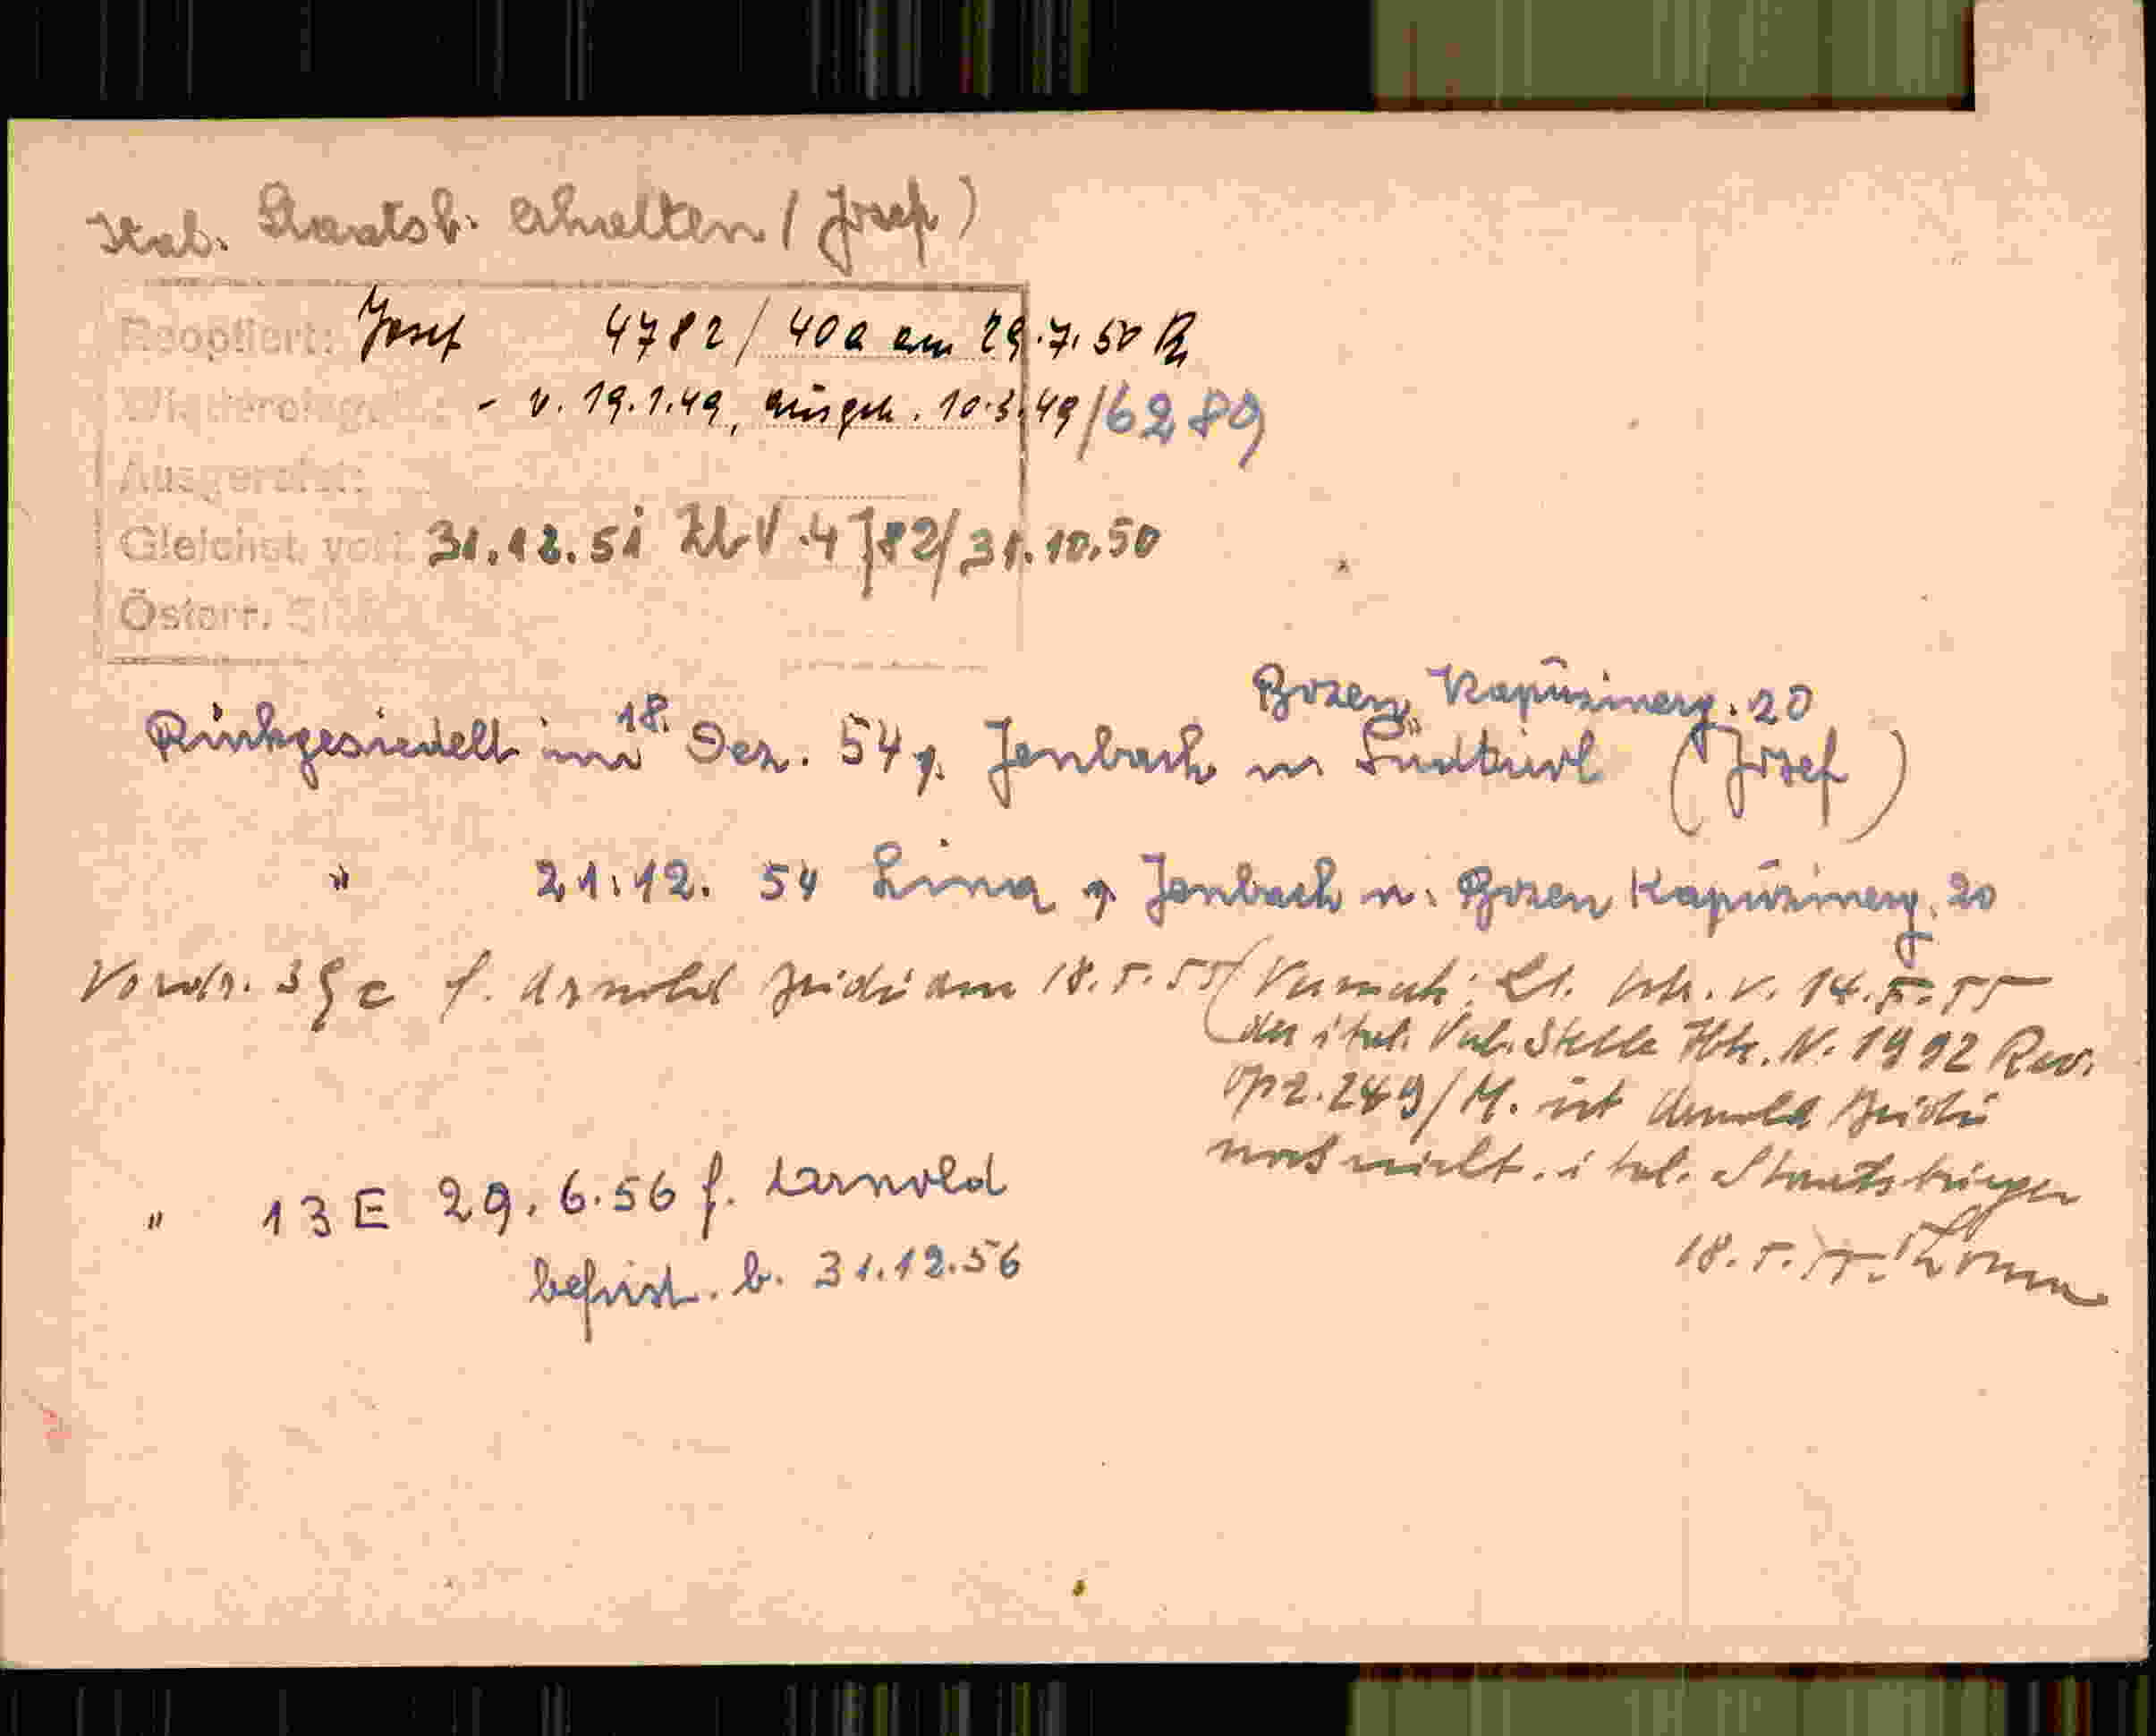 Ital. Staatsb. erhalten (Josef)
Reoptiert: Josef 4782/40a am 29.7.50
- v. 19.1.49, ausgeh. 10.3.49/6289
Ausgereist:
Gleichst. von 31.12.51 4782/31.10.50
Österr.
Bozen, Kapuzinerg. 20
Rückgesiedelt im 18. Dez. 54 v. Jenbach n. Südtirol (Josef)
" 21.12. 54 Lina v. Jenbach n. Bozen Kapuzinerg. 20
Vordr. 39c f. Arnold am 18.5.55 (Vermerk: Lt. v. 14.5.55
der ital. Stelle N. 1992
Opz. 249/M. ist Arnold
noch nicht ital. Staatsbürger
18.5.55.
" 13E 29.6.56 f. Arnold
befrist. b. 31.12.56